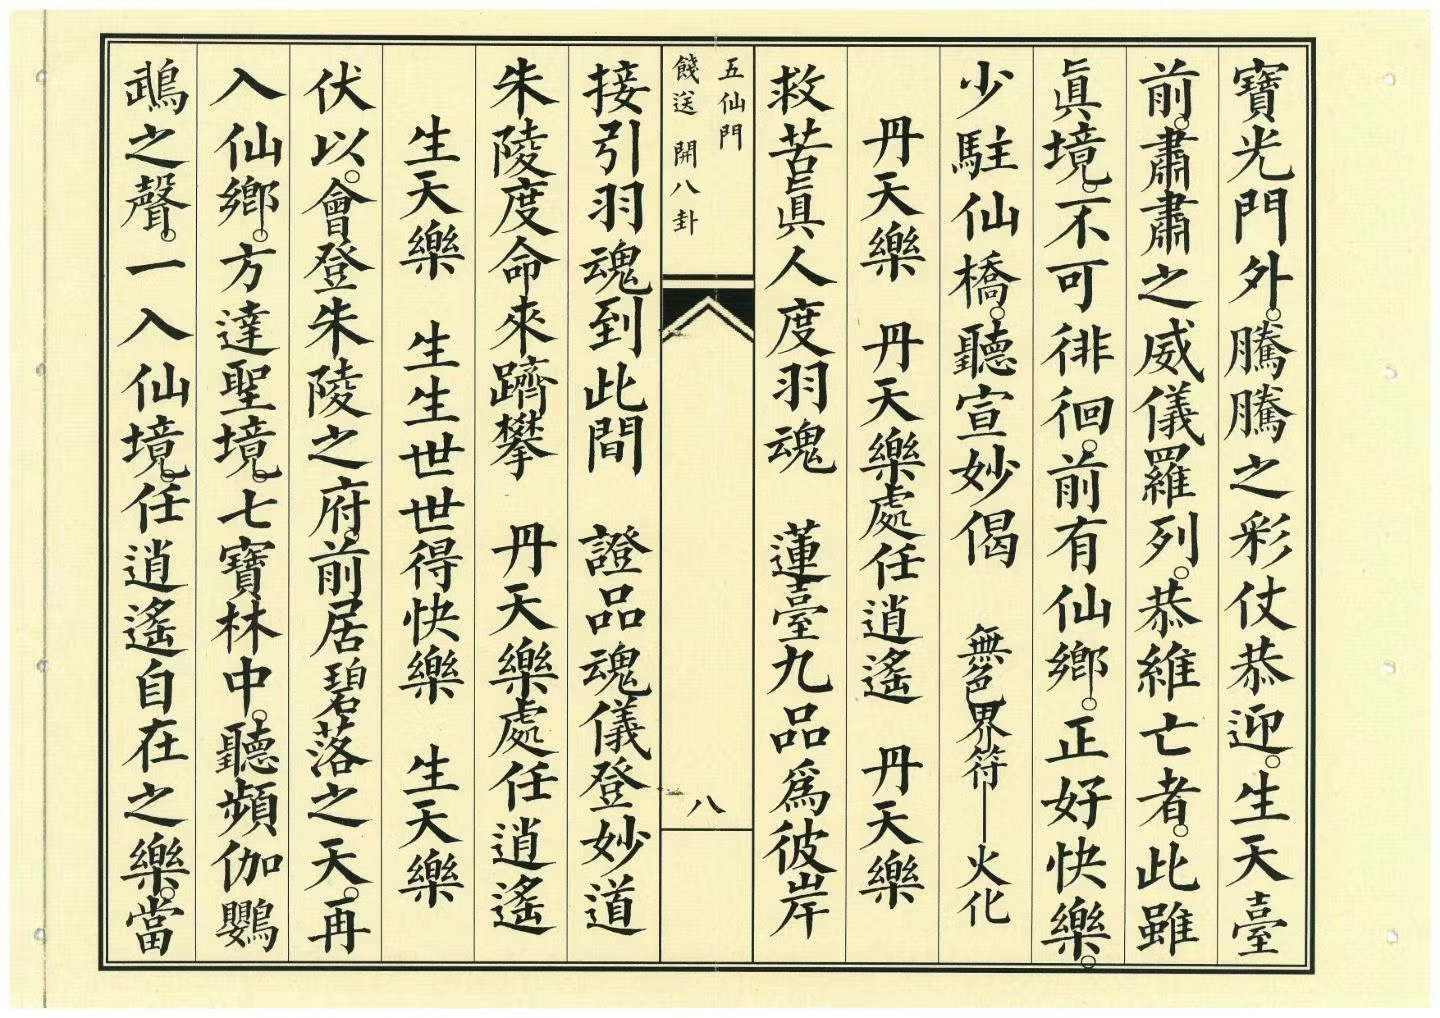 寶光門外。騰騰之彩仗恭迎。生天臺
前。肅肅之威儀羅列。恭維亡者。此雖
眞境。不可徘徊。前有仙鄉。正好快樂。
少駐仙橋。聽宣妙偈 無色界符—火化
丹天樂 丹天樂處任逍遙 丹天樂
救苦眞人度羽魂 蓮臺九品爲彼岸
五仙門
餞送 開八卦
八
接引羽魂到此間 證品魂儀登妙道
朱陵度命來躋攀 丹天樂處任逍遙
生天樂 生生世世得快樂 生天樂
伏以。會登朱陵之府。前居碧落之天。再
入仙鄉。方達聖境。七寶林中。聽頻伽鸚
鵡之聲。一入仙境。任逍遙自在之樂。當